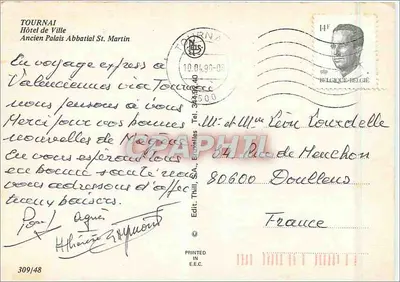 TOURNAI
Hôtel de Ville
Ancien Palais Abbatial St. Martin
En voyage express à
Valenciennes via Tournai
nous pensons à vous
Merci pour vos bonnes
nouvelles de
En vous espérant tous
en bonne santé nous
vous adressons d'affec
tueux baisers.
Agnès
Raymond
309/48
TOURNAI
500
14F
BELGIQUE-BELGIË
Edit. Thill, S.A. Bruxelles
PRINTED
IN
E.E.C.
Mr et Mme Léon Tourdelle
Rue de Menchon
80600 Doullens
France